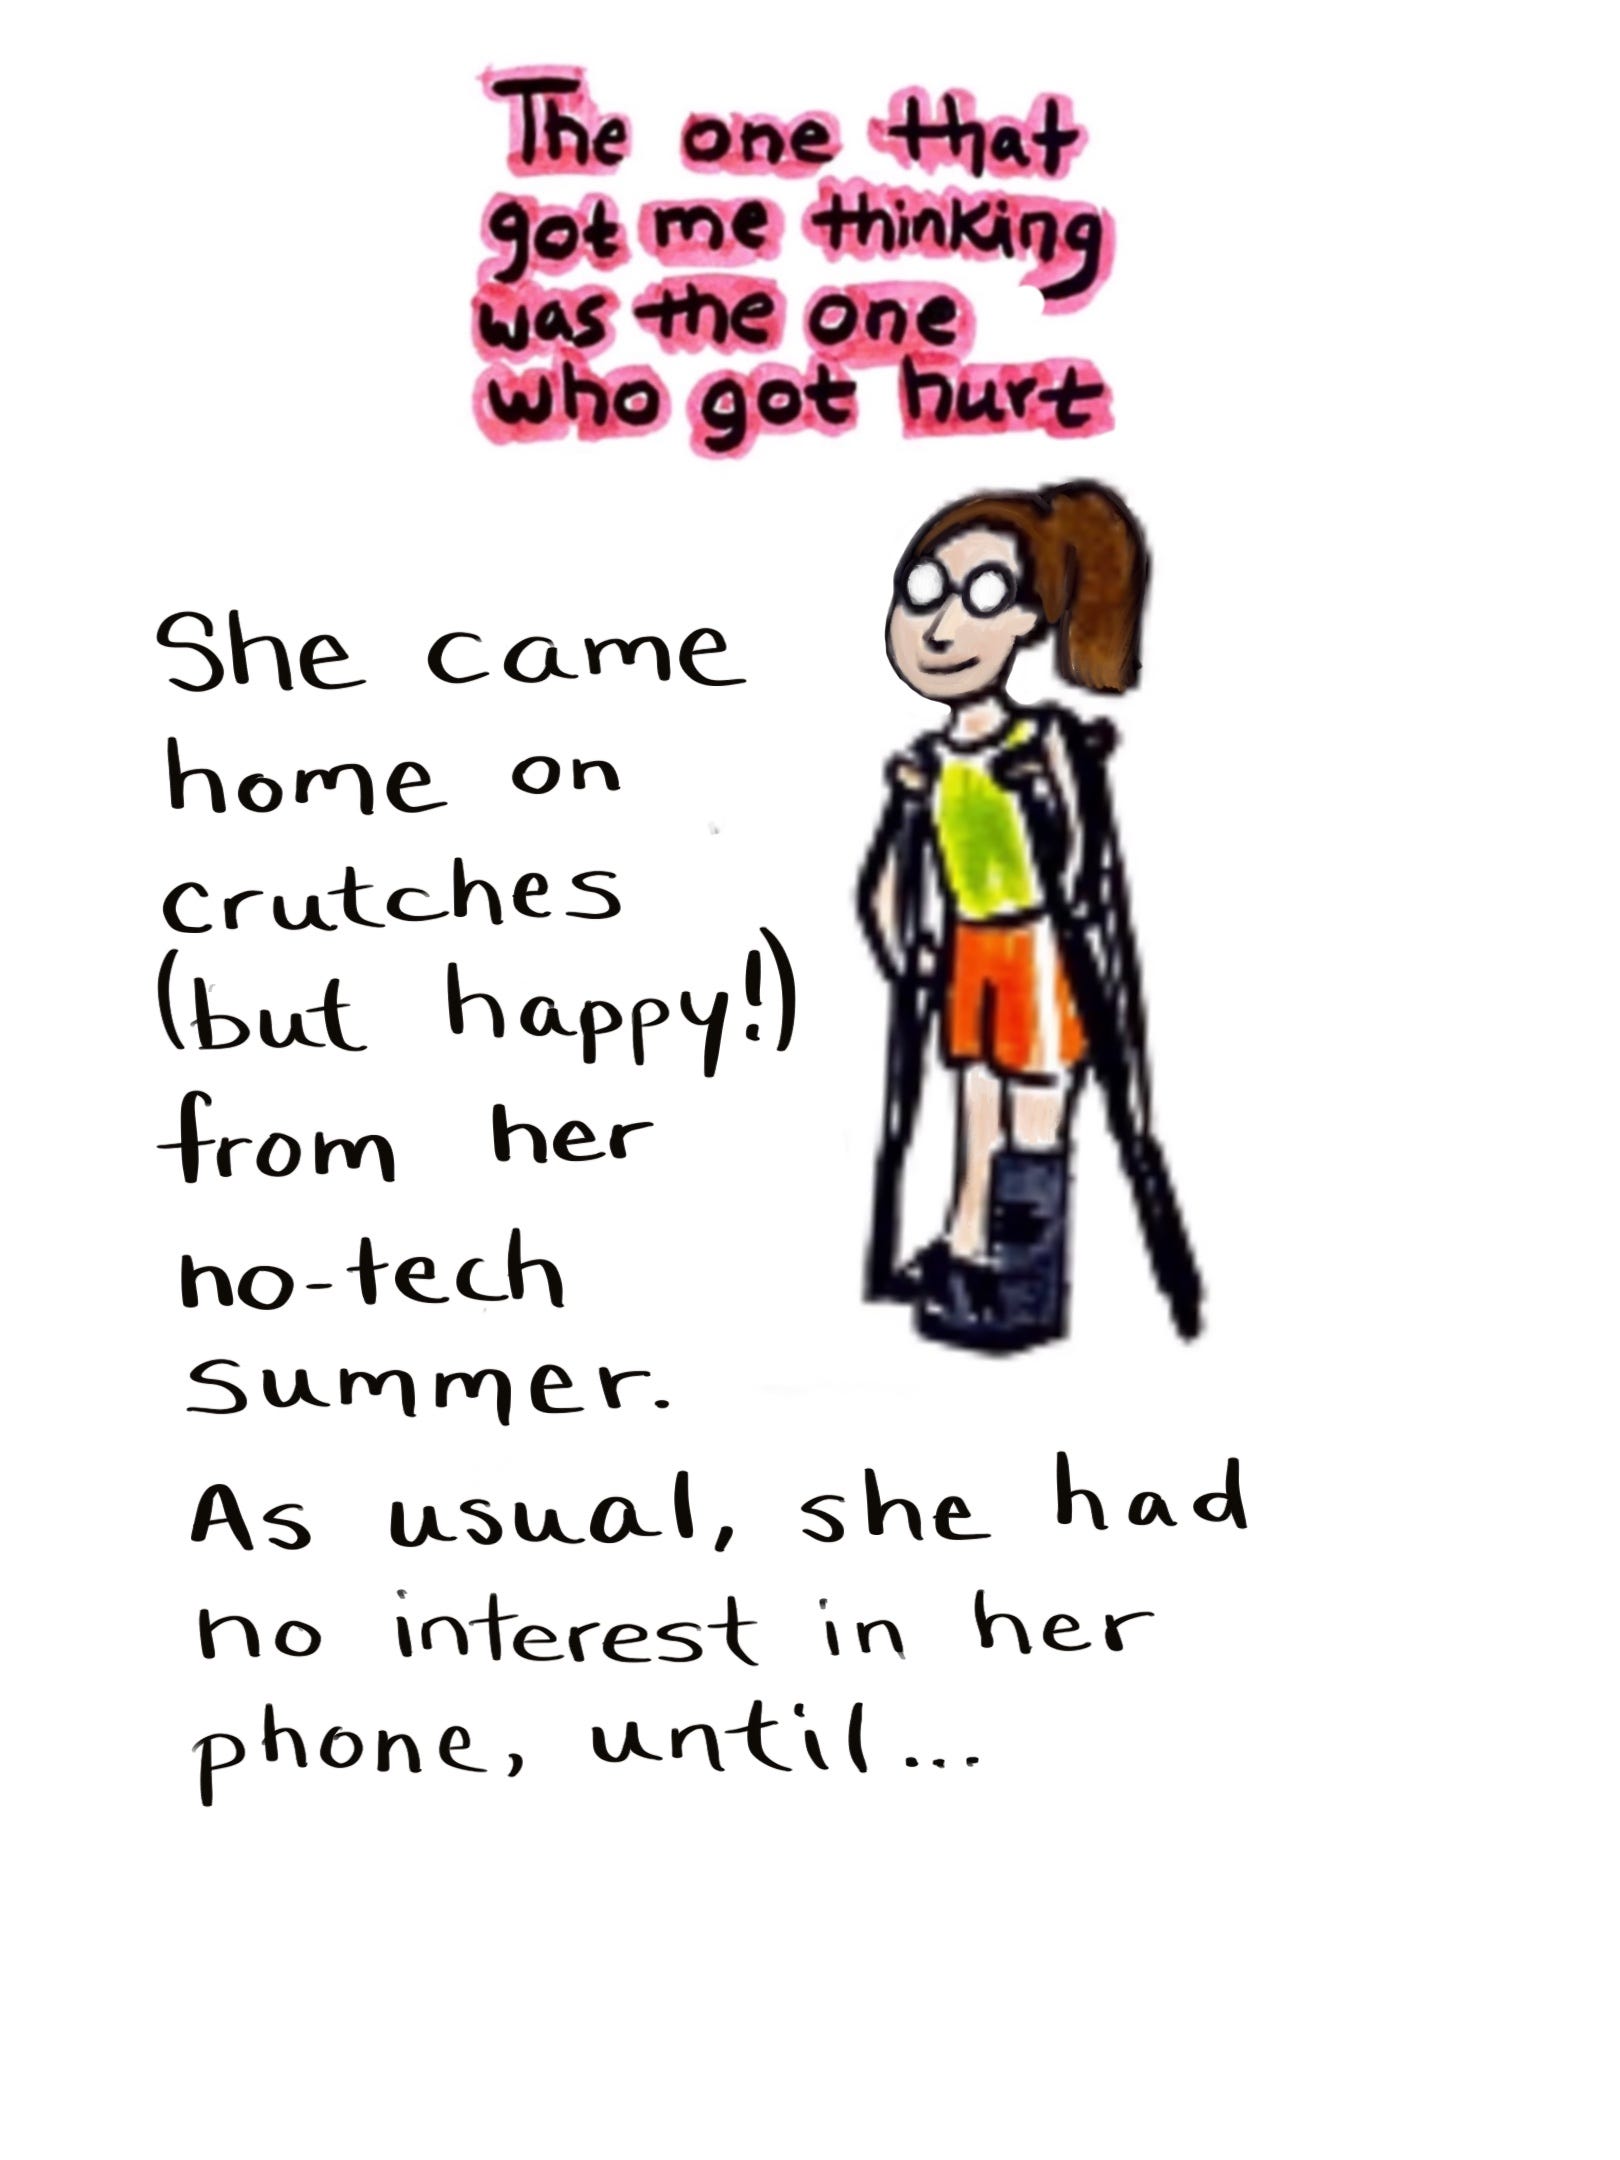 The one that
got me thinking
was the one
who got hurt
She came
home on
crutches
(but happy!)
from her
no-tech
summer.
As usual, she had
no interest in her
phone, until...